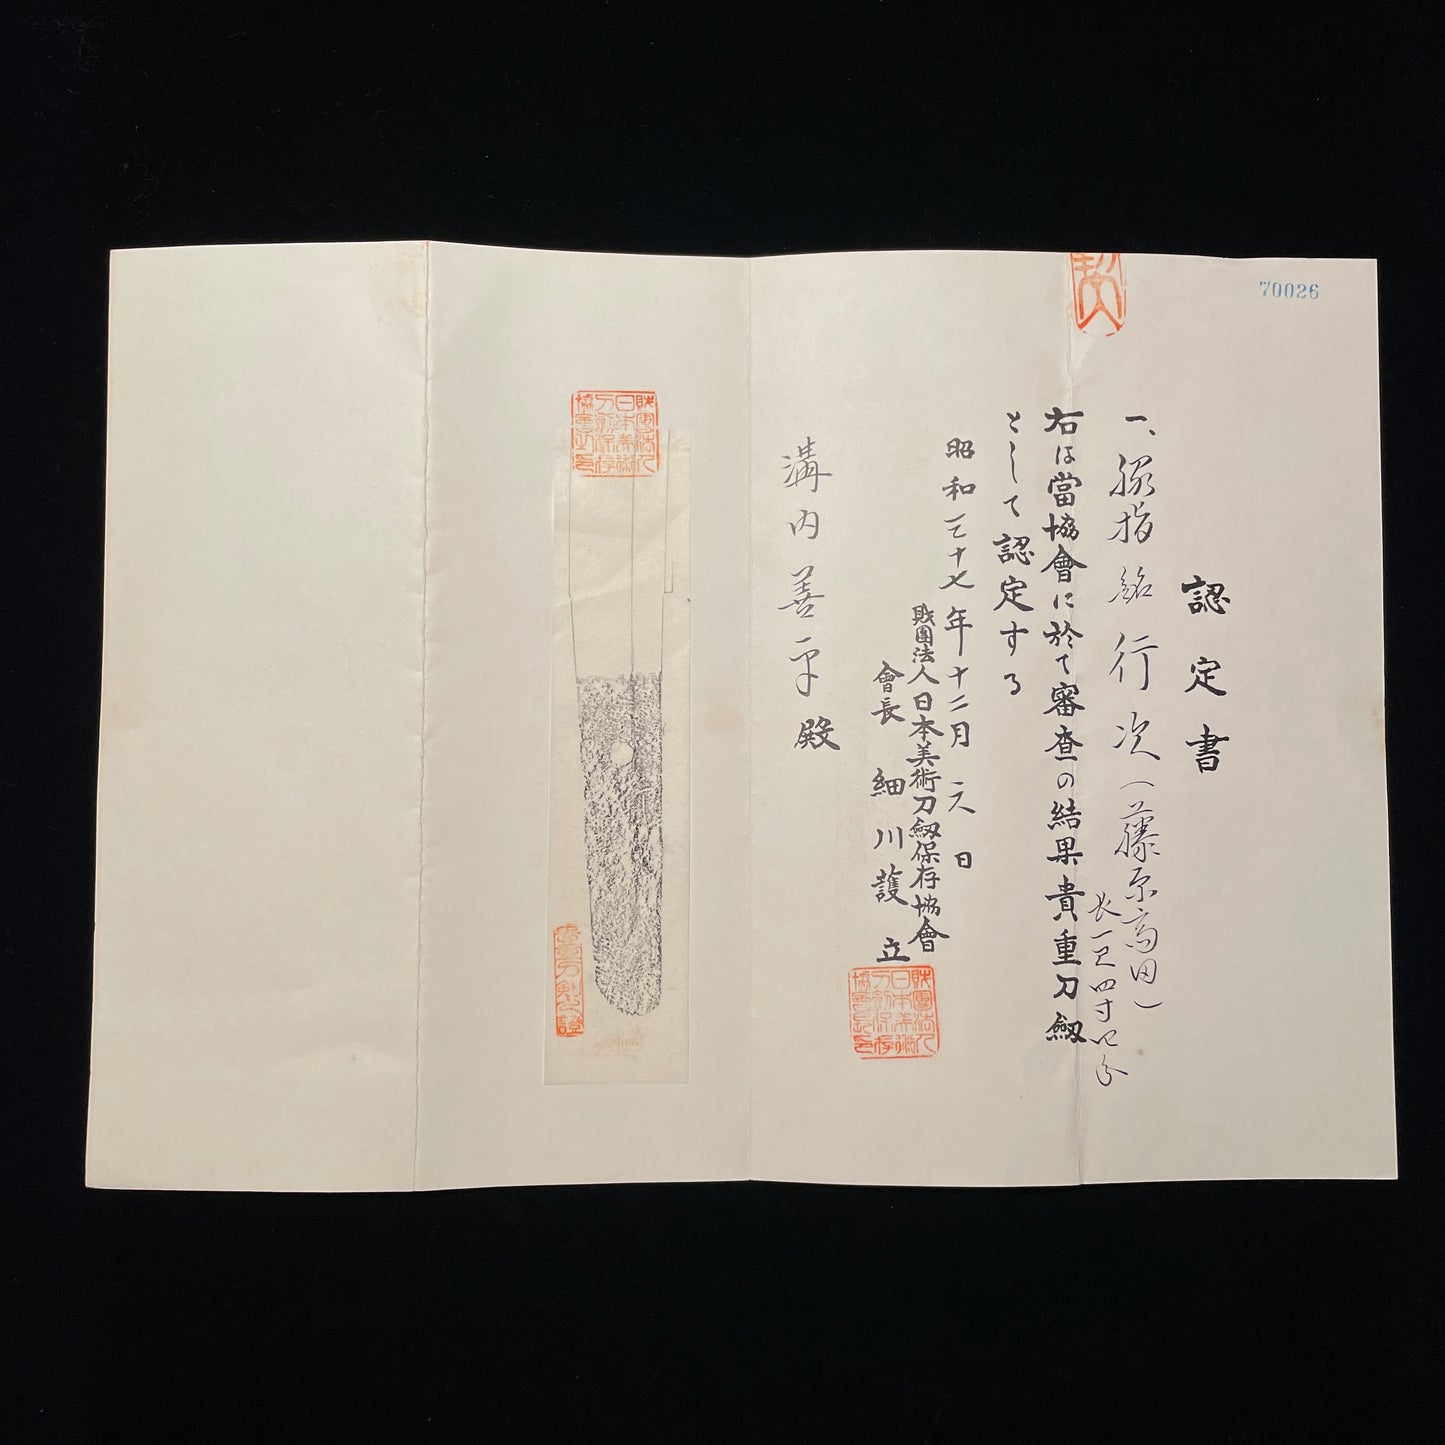 70026
認定書
一、脇指 銘 行次(藤原高田)
長一尺四寸四分
右は當協會に於て審査の結果貴重刀劔
として認定する
昭和三十七年十二月 六 日
財團法人日本美術刀劔保存協會
會長 細川護立
財團法人日本美術刀剣保存協會長印
溝内善平殿
財團法人日本美術刀剣保存協會之印
貴重刀剣之證